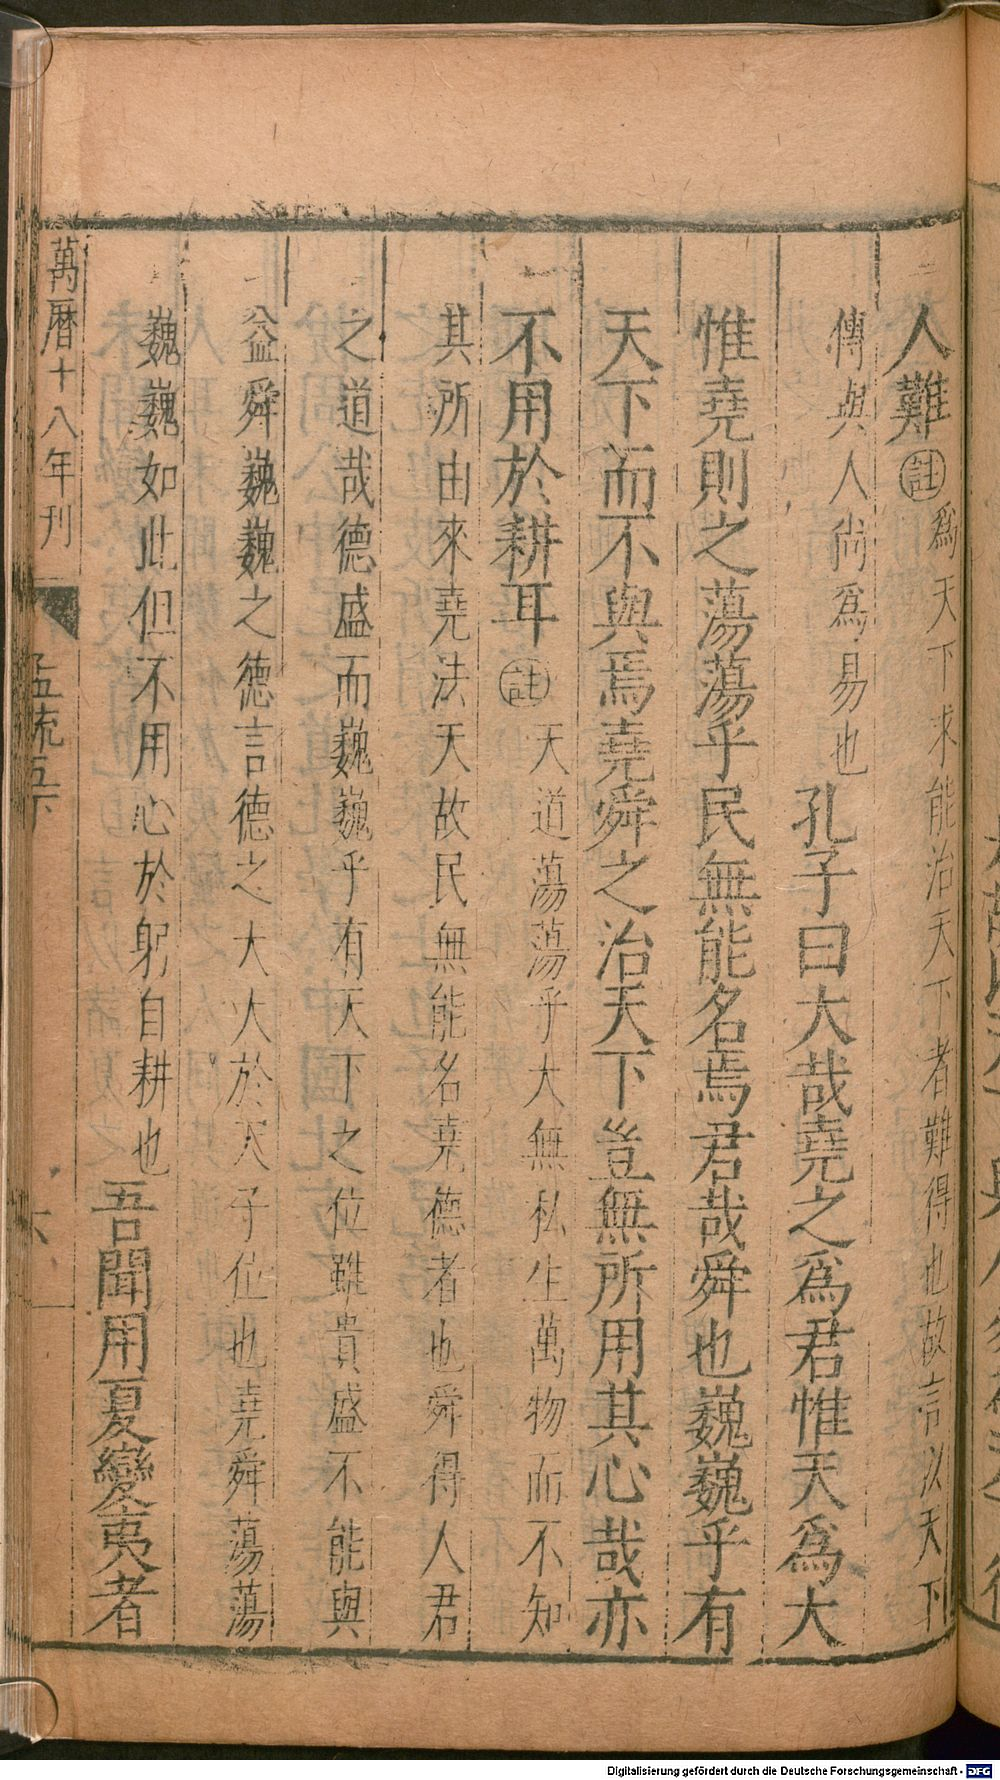 人難註爲天下求能治天下者難得也故言以天下
傳與人尚爲易也孔子曰大哉堯之爲君惟天爲大
惟堯則之蕩蕩乎民無能名焉君哉舜也巍巍乎有
天下而不與焉堯舜之治天下豈無所用其心哉亦
不用於耕耳註天道蕩蕩乎大無私生萬物而不知
其所由來堯法天故民無能名堯德者也舜得人君
之道哉德盛而巍巍乎有天下之位雖貴盛不能與
益舜巍巍之德言德之大大於天子位也堯舜蕩蕩
巍巍如此但不用心於躬自耕也吾聞用夏變夷者
萬曆十八年刊
孟疏五下
六
Digitalisierung gefördert durch die Deutsche Forschungsgemeinschaft - DFG